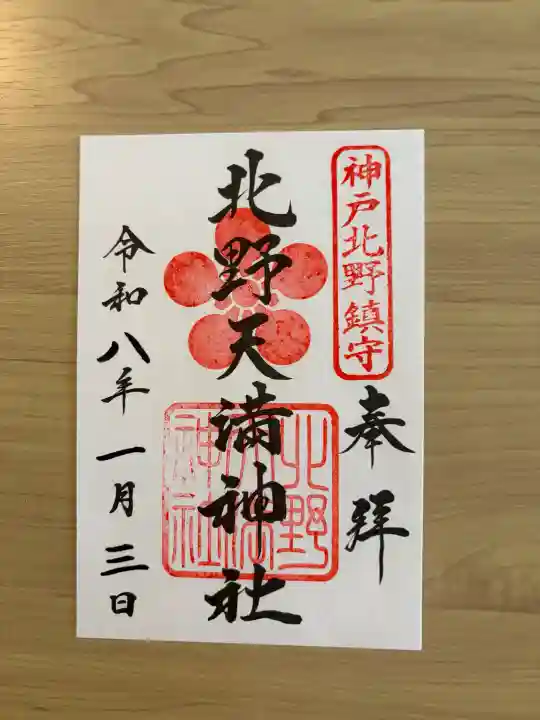 神戸北野鎮守
奉拝
北野天満神社
北野天満神社
令和八年一月三日